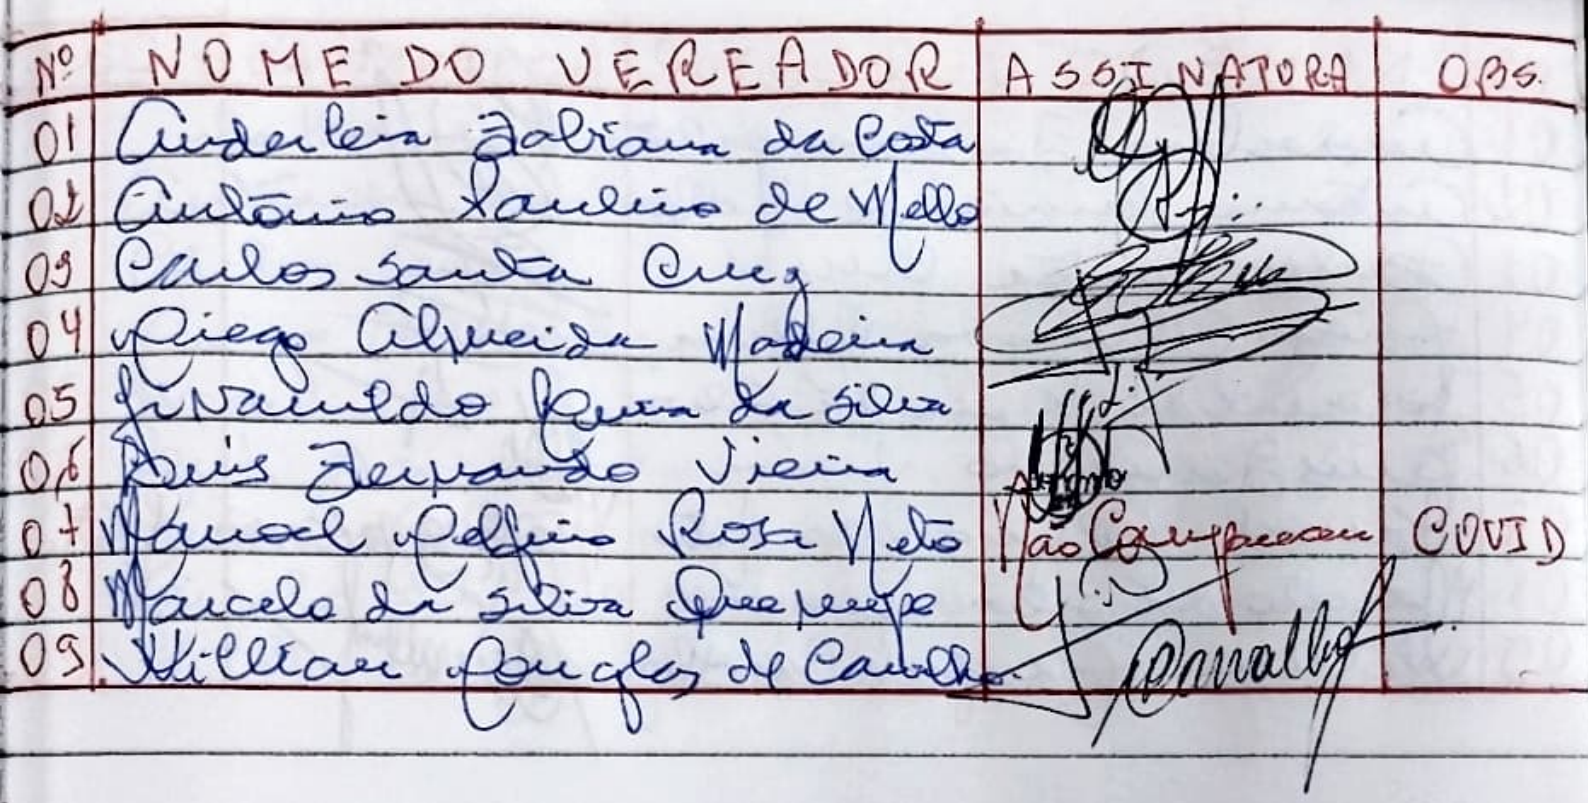 Nº NOME DO VEREADOR ASSINATURA OBS.
01 Anderleia Fabiana da Costa
02 Antônio Paulino de Mello
03 Carlos Santa Cruz
04 Diego Almeida Madeira
05 Jivanildo da Silva
06 Luis Fernando Vieira
07 Manoel Delfino Rosa Neto Não Compareceu COVID
08 Marcelo da Silva
09 Willian Douglas de Carvalho. Carvalho